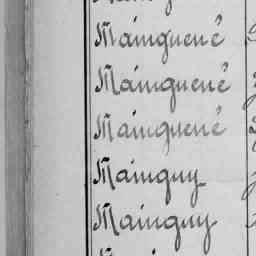 Mainguené
Mainguené
Mainguené
Mainguy
Mainguy